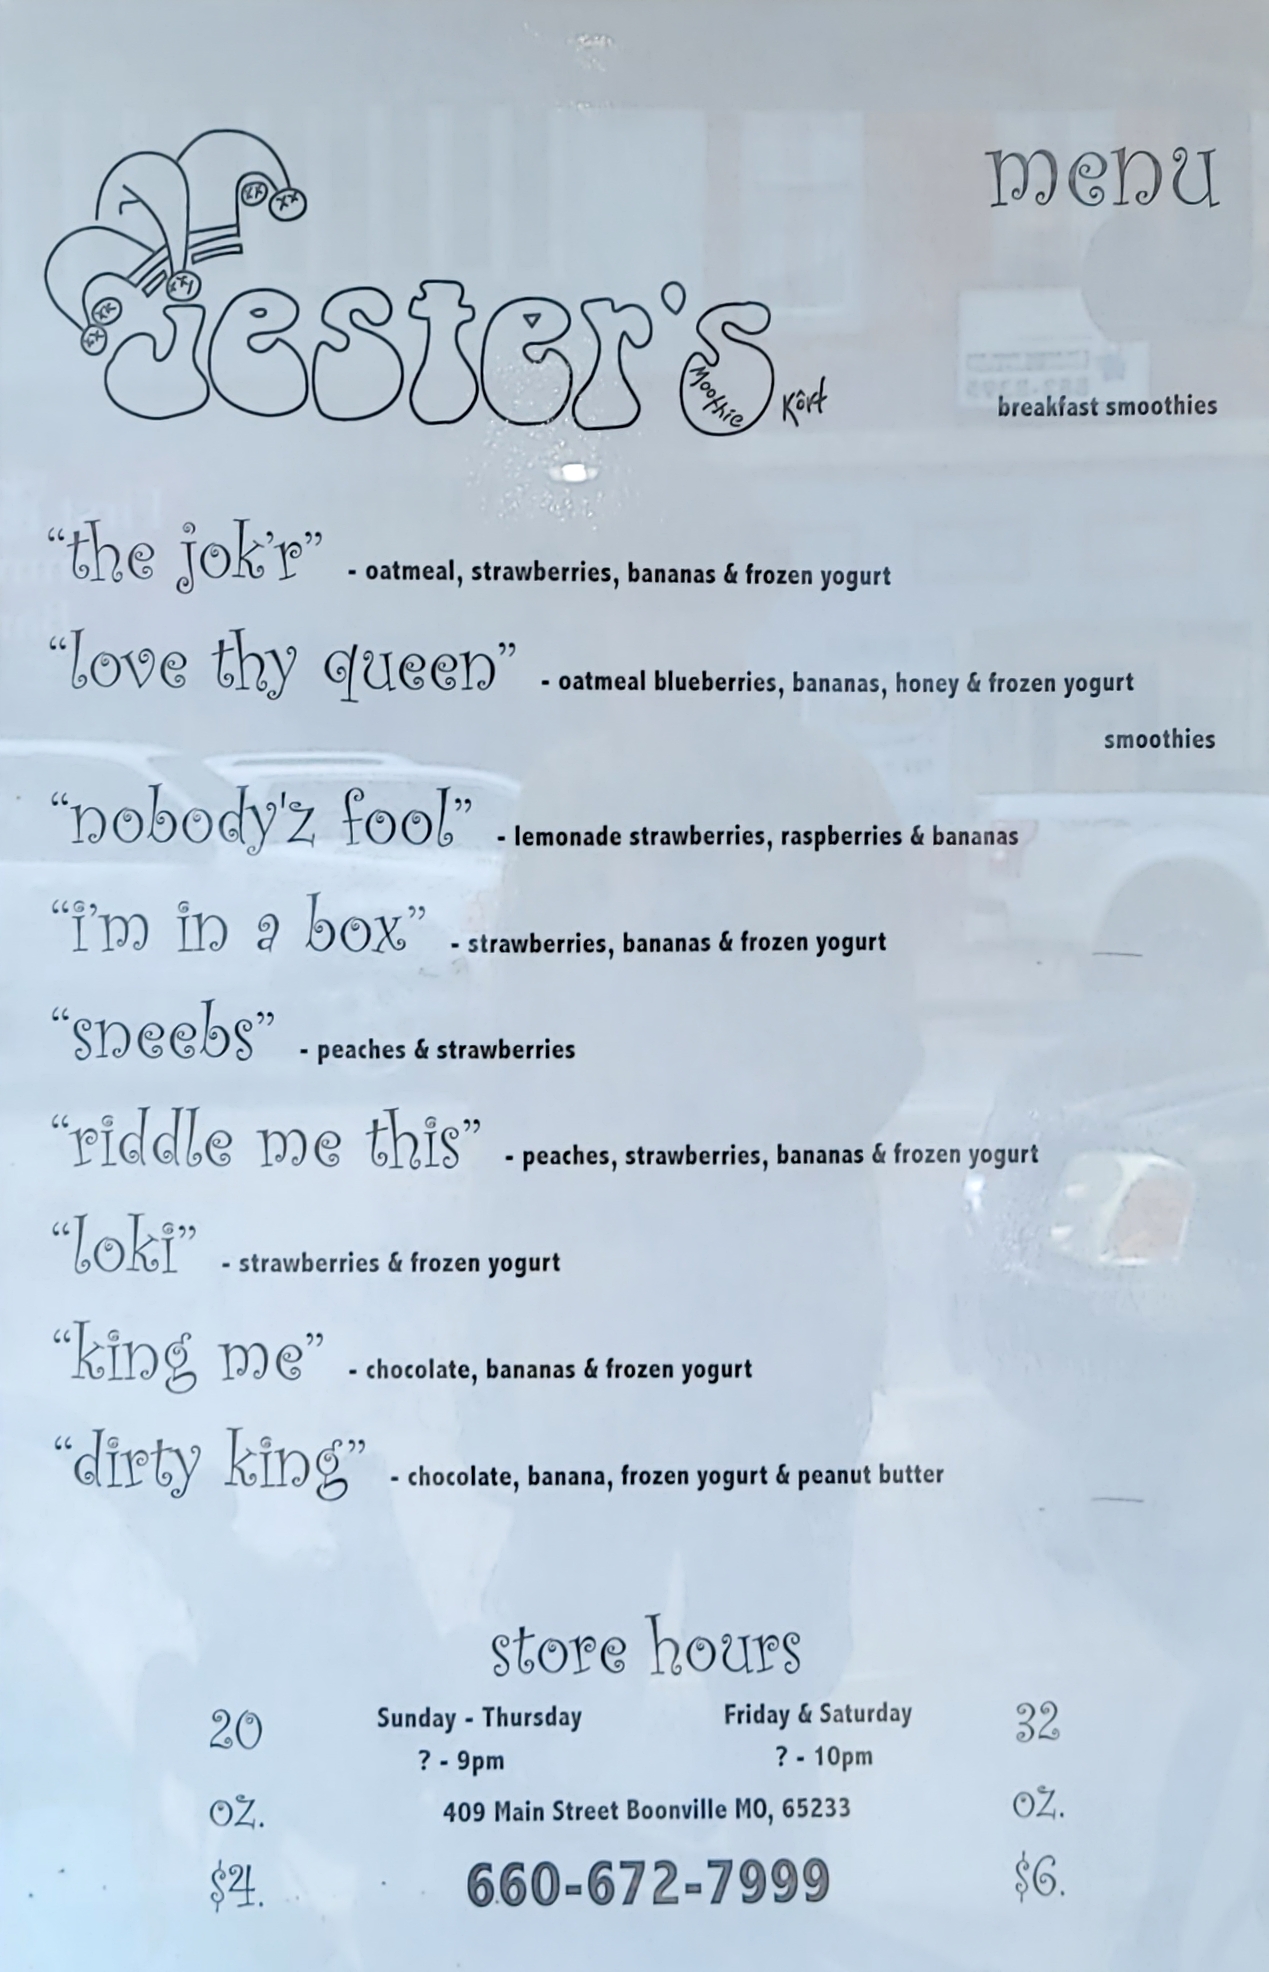 menu
Jester's
Moothie
Kôrt
breakfast smoothies
“the jok’r” - oatmeal, strawberries, bananas & frozen yogurt
“love thy queen” - oatmeal blueberries, bananas, honey & frozen yogurt
smoothies
“nobody'z fool” - lemonade strawberries, raspberries & bananas
“i’m in a box” - strawberries, bananas & frozen yogurt
“sneebs” - peaches & strawberries
“riddle me this” - peaches, strawberries, bananas & frozen yogurt
“loki” - strawberries & frozen yogurt
“king me” - chocolate, bananas & frozen yogurt
“dirty king” - chocolate, banana, frozen yogurt & peanut butter
store hours
20 Sunday - Thursday Friday & Saturday 32
? - 9pm ? - 10pm
oz. 409 Main Street Boonville MO, 65233 oz.
$4. 660-672-7999 $6.